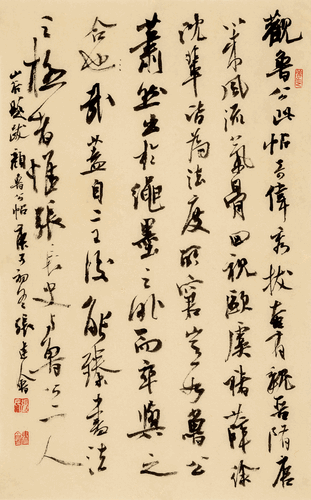 觀魯公此帖奇偉秀拔奄有魏晉隋唐
以来風流氣骨回視歐虞褚薛徐
沈輩皆為法度所窘豈如魯公
蕭然出於繩墨之外而卒與之
合也哉蓋自二王後能臻書法
之極者惟張長史與魯公二人
山谷題跋顏魯公帖庚子初冬張建會